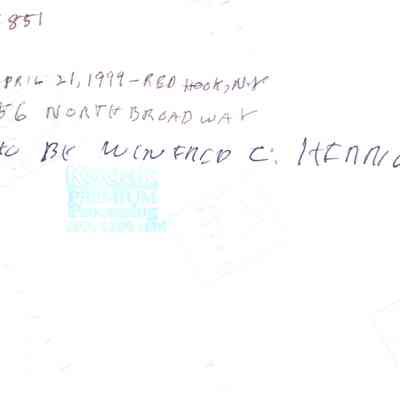 851
PRIL 21, 1999 - RED HOOK, N.Y
56 NORTH BROADWAY
BY WINIFRED C. HERRIC
Kodak
PREMIUM
Processing